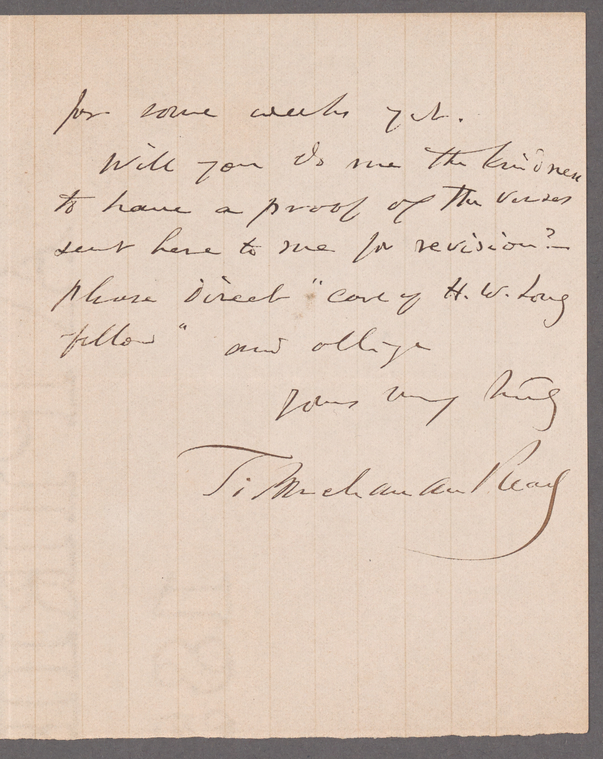 for some weeks yet.
Will you do me the kindness
to have a proof of the verses
sent here to me for revision?—
please direct "care of H. W. Long
fellow" and oblige
Yours very truly
T. Buchanan Read